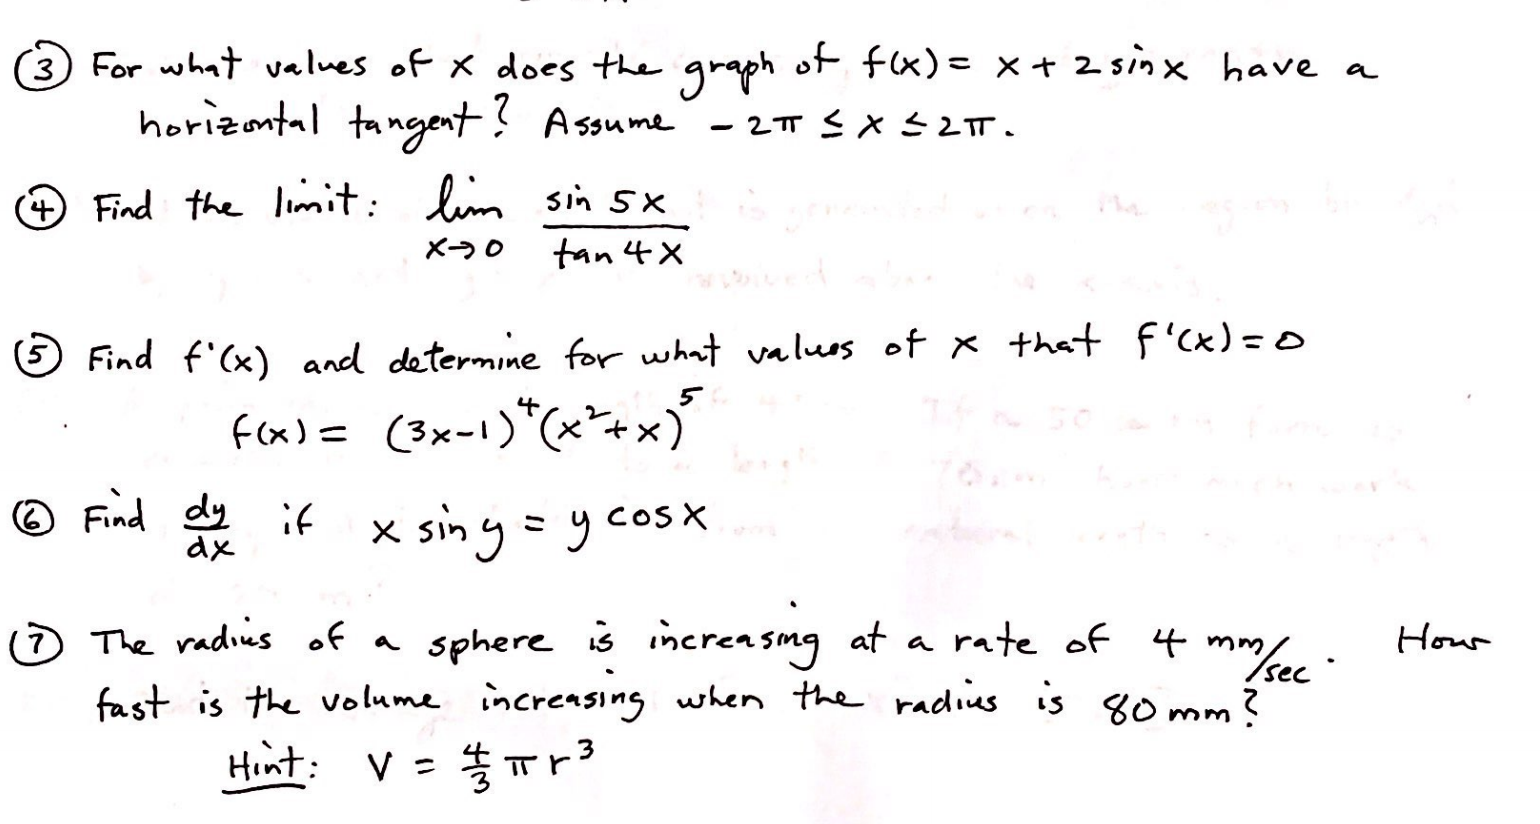 ③ For what values of x does the graph of f(x) = x + 2 sin x have a
horizontal tangent? Assume -2π ≤ x ≤ 2π.
④ Find the limit: lim x→0 sin 5x / tan 4x
⑤ Find f'(x) and determine for what values of x that f'(x) = 0
f(x) = (3x-1)⁴(x²+x)⁵
⑥ Find dy/dx if x sin y = y cos x
⑦ The radius of a sphere is increasing at a rate of 4 mm/sec. How
fast is the volume increasing when the radius is 80 mm?
Hint: V = 4/3 π r³